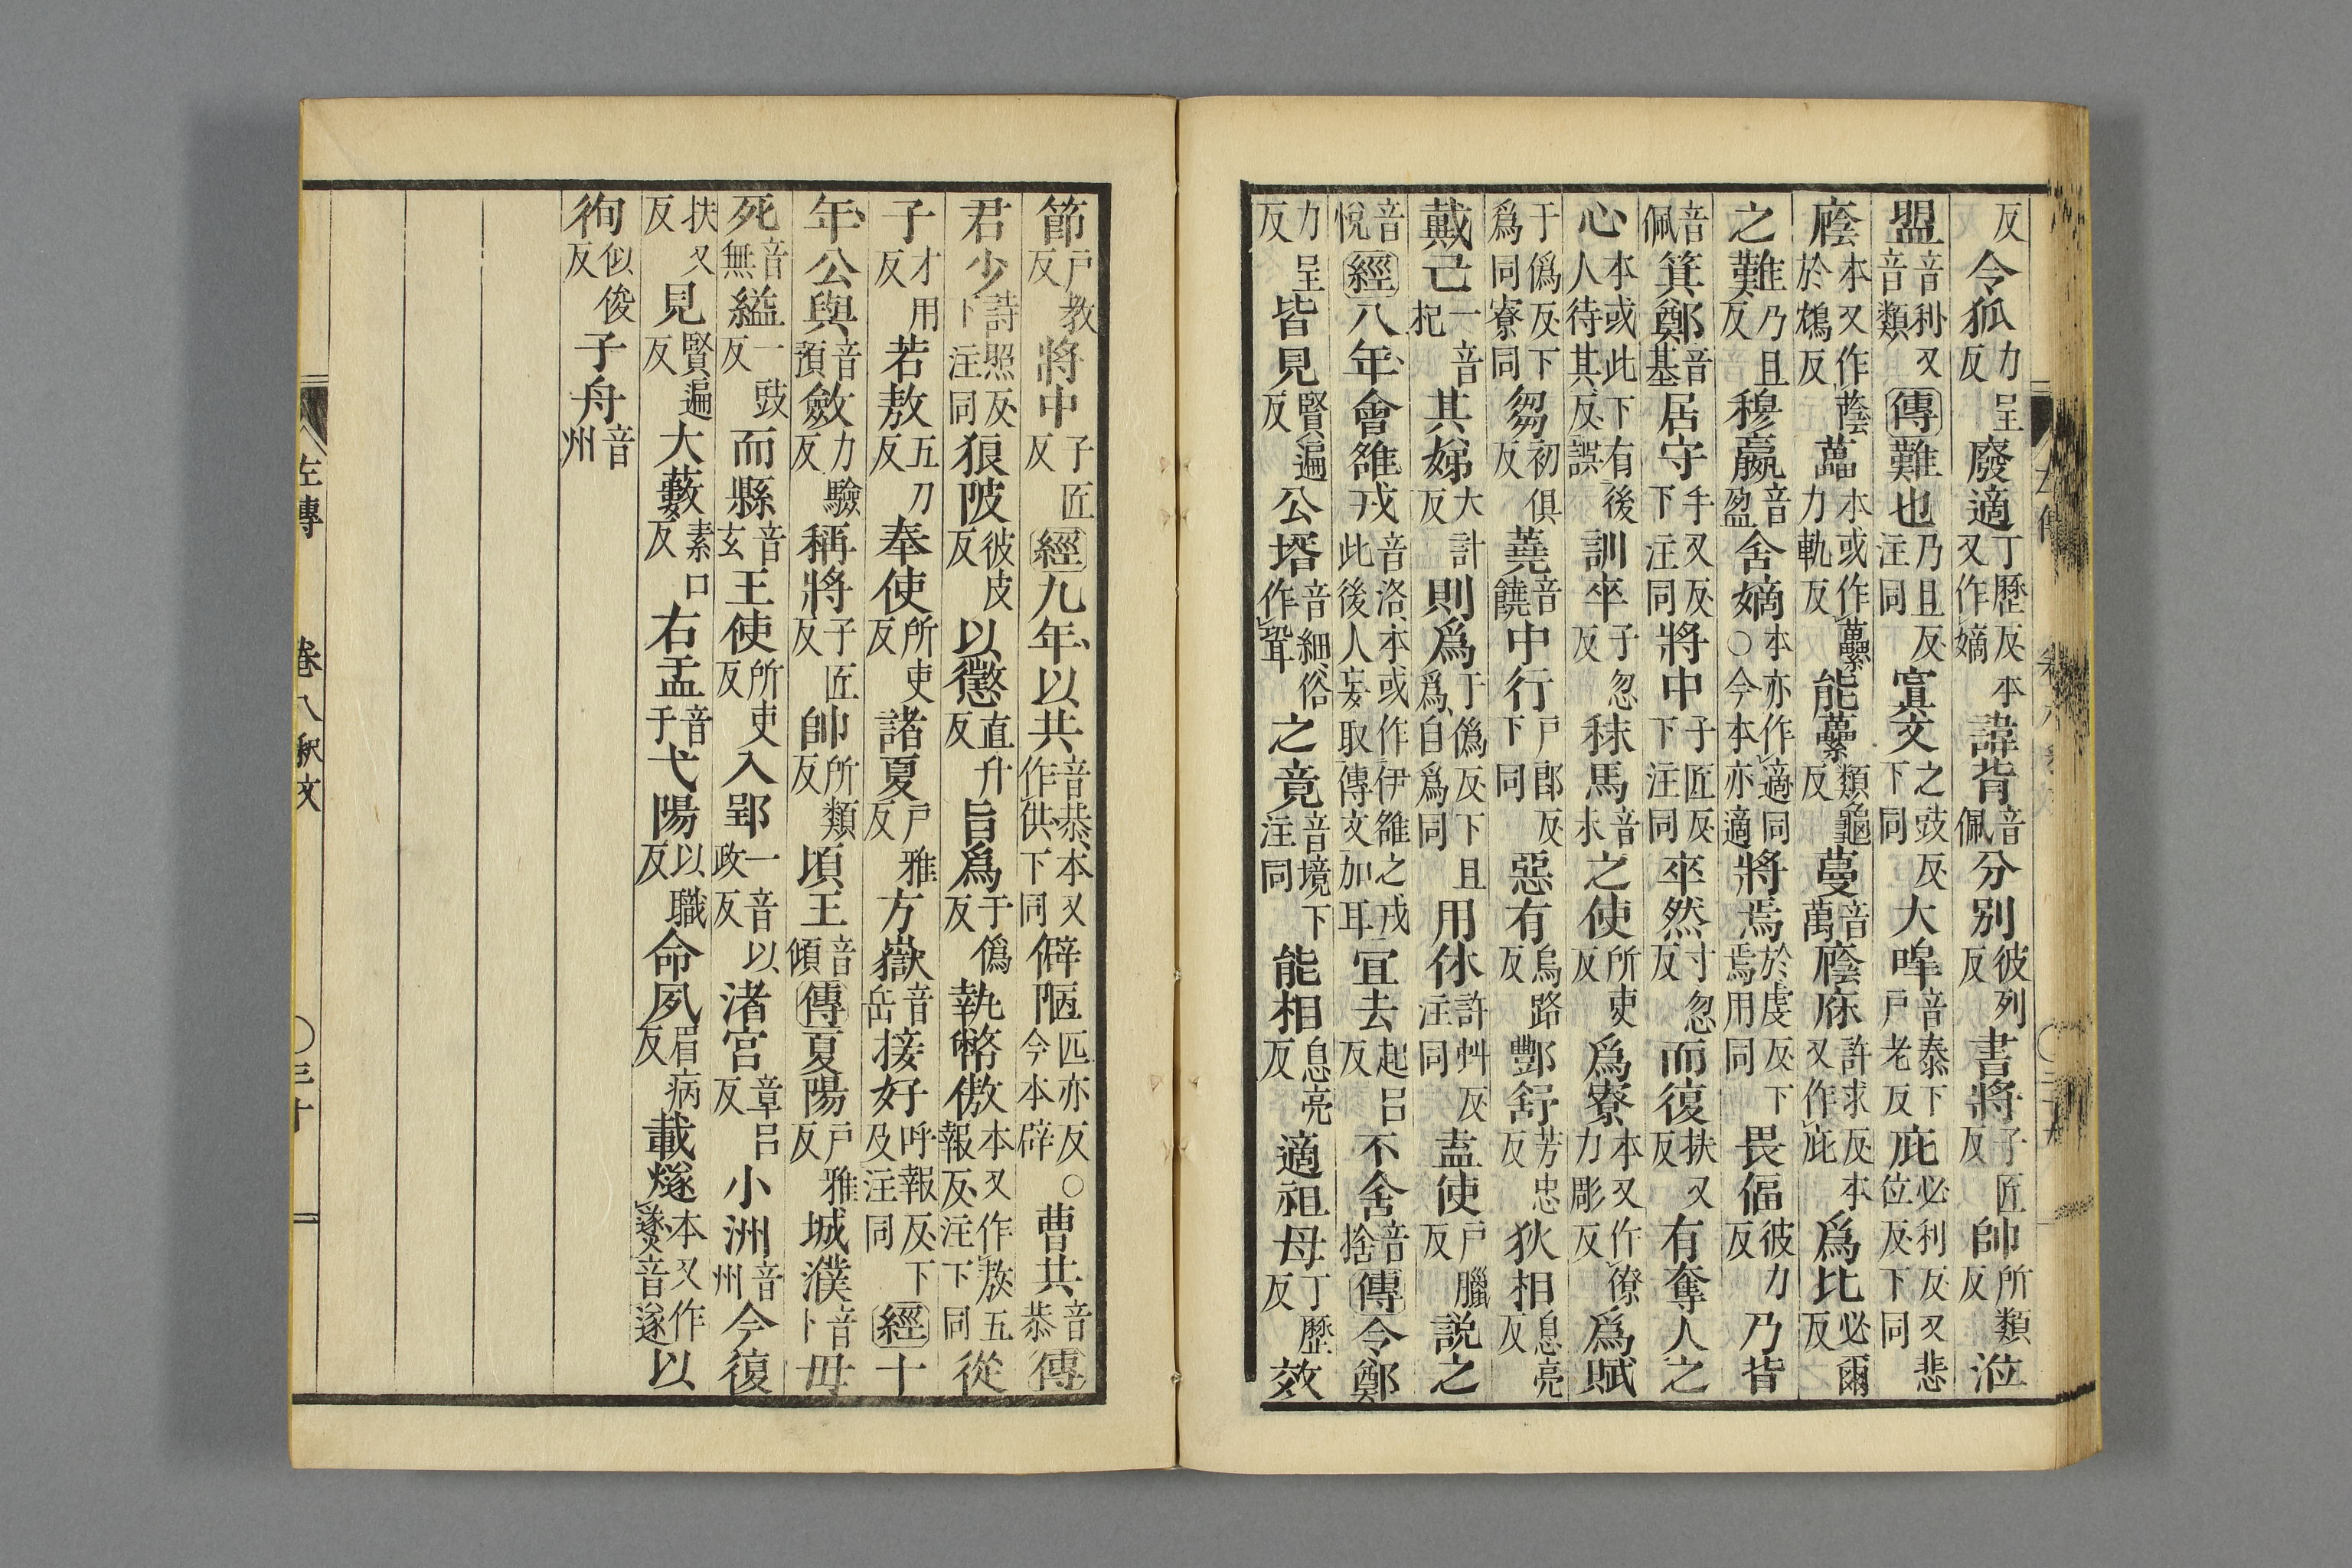 反令狐力呈反廢適丁歷反本又作嫡諱背音佩分別彼列反書將子匠反帥所類反涖
盟音利又音類傳難也乃且反注同寘文之豉反下同大皞音泰下戶老反庇必利反又悲位反下同
廕本又作蔭於鴆反藟本或作虆力軌反能虆類龜反蔓音萬廕庥許求反本又作庇爲比必爾反
之難乃且反穆嬴音盈舍嫡本亦作適同○今本亦適將焉於虔反下焉用同畏偪彼力反乃背
音佩箕鄭音基居守手又反下注同將中子匠反下注同卒然寸忽反而復扶又反有奪人之
心本或此下有後人待其反誤訓卒子忽反秣馬音末之使所吏反爲寮本又作僚力彫反爲賦
于僞反下爲同寮同芻初俱反蕘音饒中行戶郎反下同惡有烏路反酆舒芳忠反狄相息亮反
戴己一音杞其娣大計反則爲于僞反下且爲自爲同用休許艸反注同蓋使戶臘反說之
音悅經八年會雒戎音洛本或作伊雒之戎此後人妄取傳文加耳宜去起呂反不舍音捨傳令鄭
力呈反皆見賢遍反公壻音細俗作聟之竟音境下注同能相息亮反適祖母丁歷反效
節戶教反將中子匠反經九年以共音恭本又作供下同僻陋匹亦反○今本辟曹共音恭傳
君少詩照反下注同狼陂彼皮反以懲直升反旨爲于僞反執幣傲本又作敖五報反注下同從
子才用反若敖五刀反奉使所吏反諸夏戶雅反方嶽音岳接好呼報反下及注同經十
年公與音預斂力驗反稱將子匠反帥所類反頃王音傾傳夏陽戶雅反城濮音卜毋
死音無縊一豉反而縣音玄王使所吏反入郢一音以政反渚宮章呂反小洲音州今復
扶又反見賢遍反大藪素口反右盂音于弋陽以職反命夙眉病反載燧本又作㸂音遂以
徇似俊反子舟音州
左傳 卷八釈文 ○三十